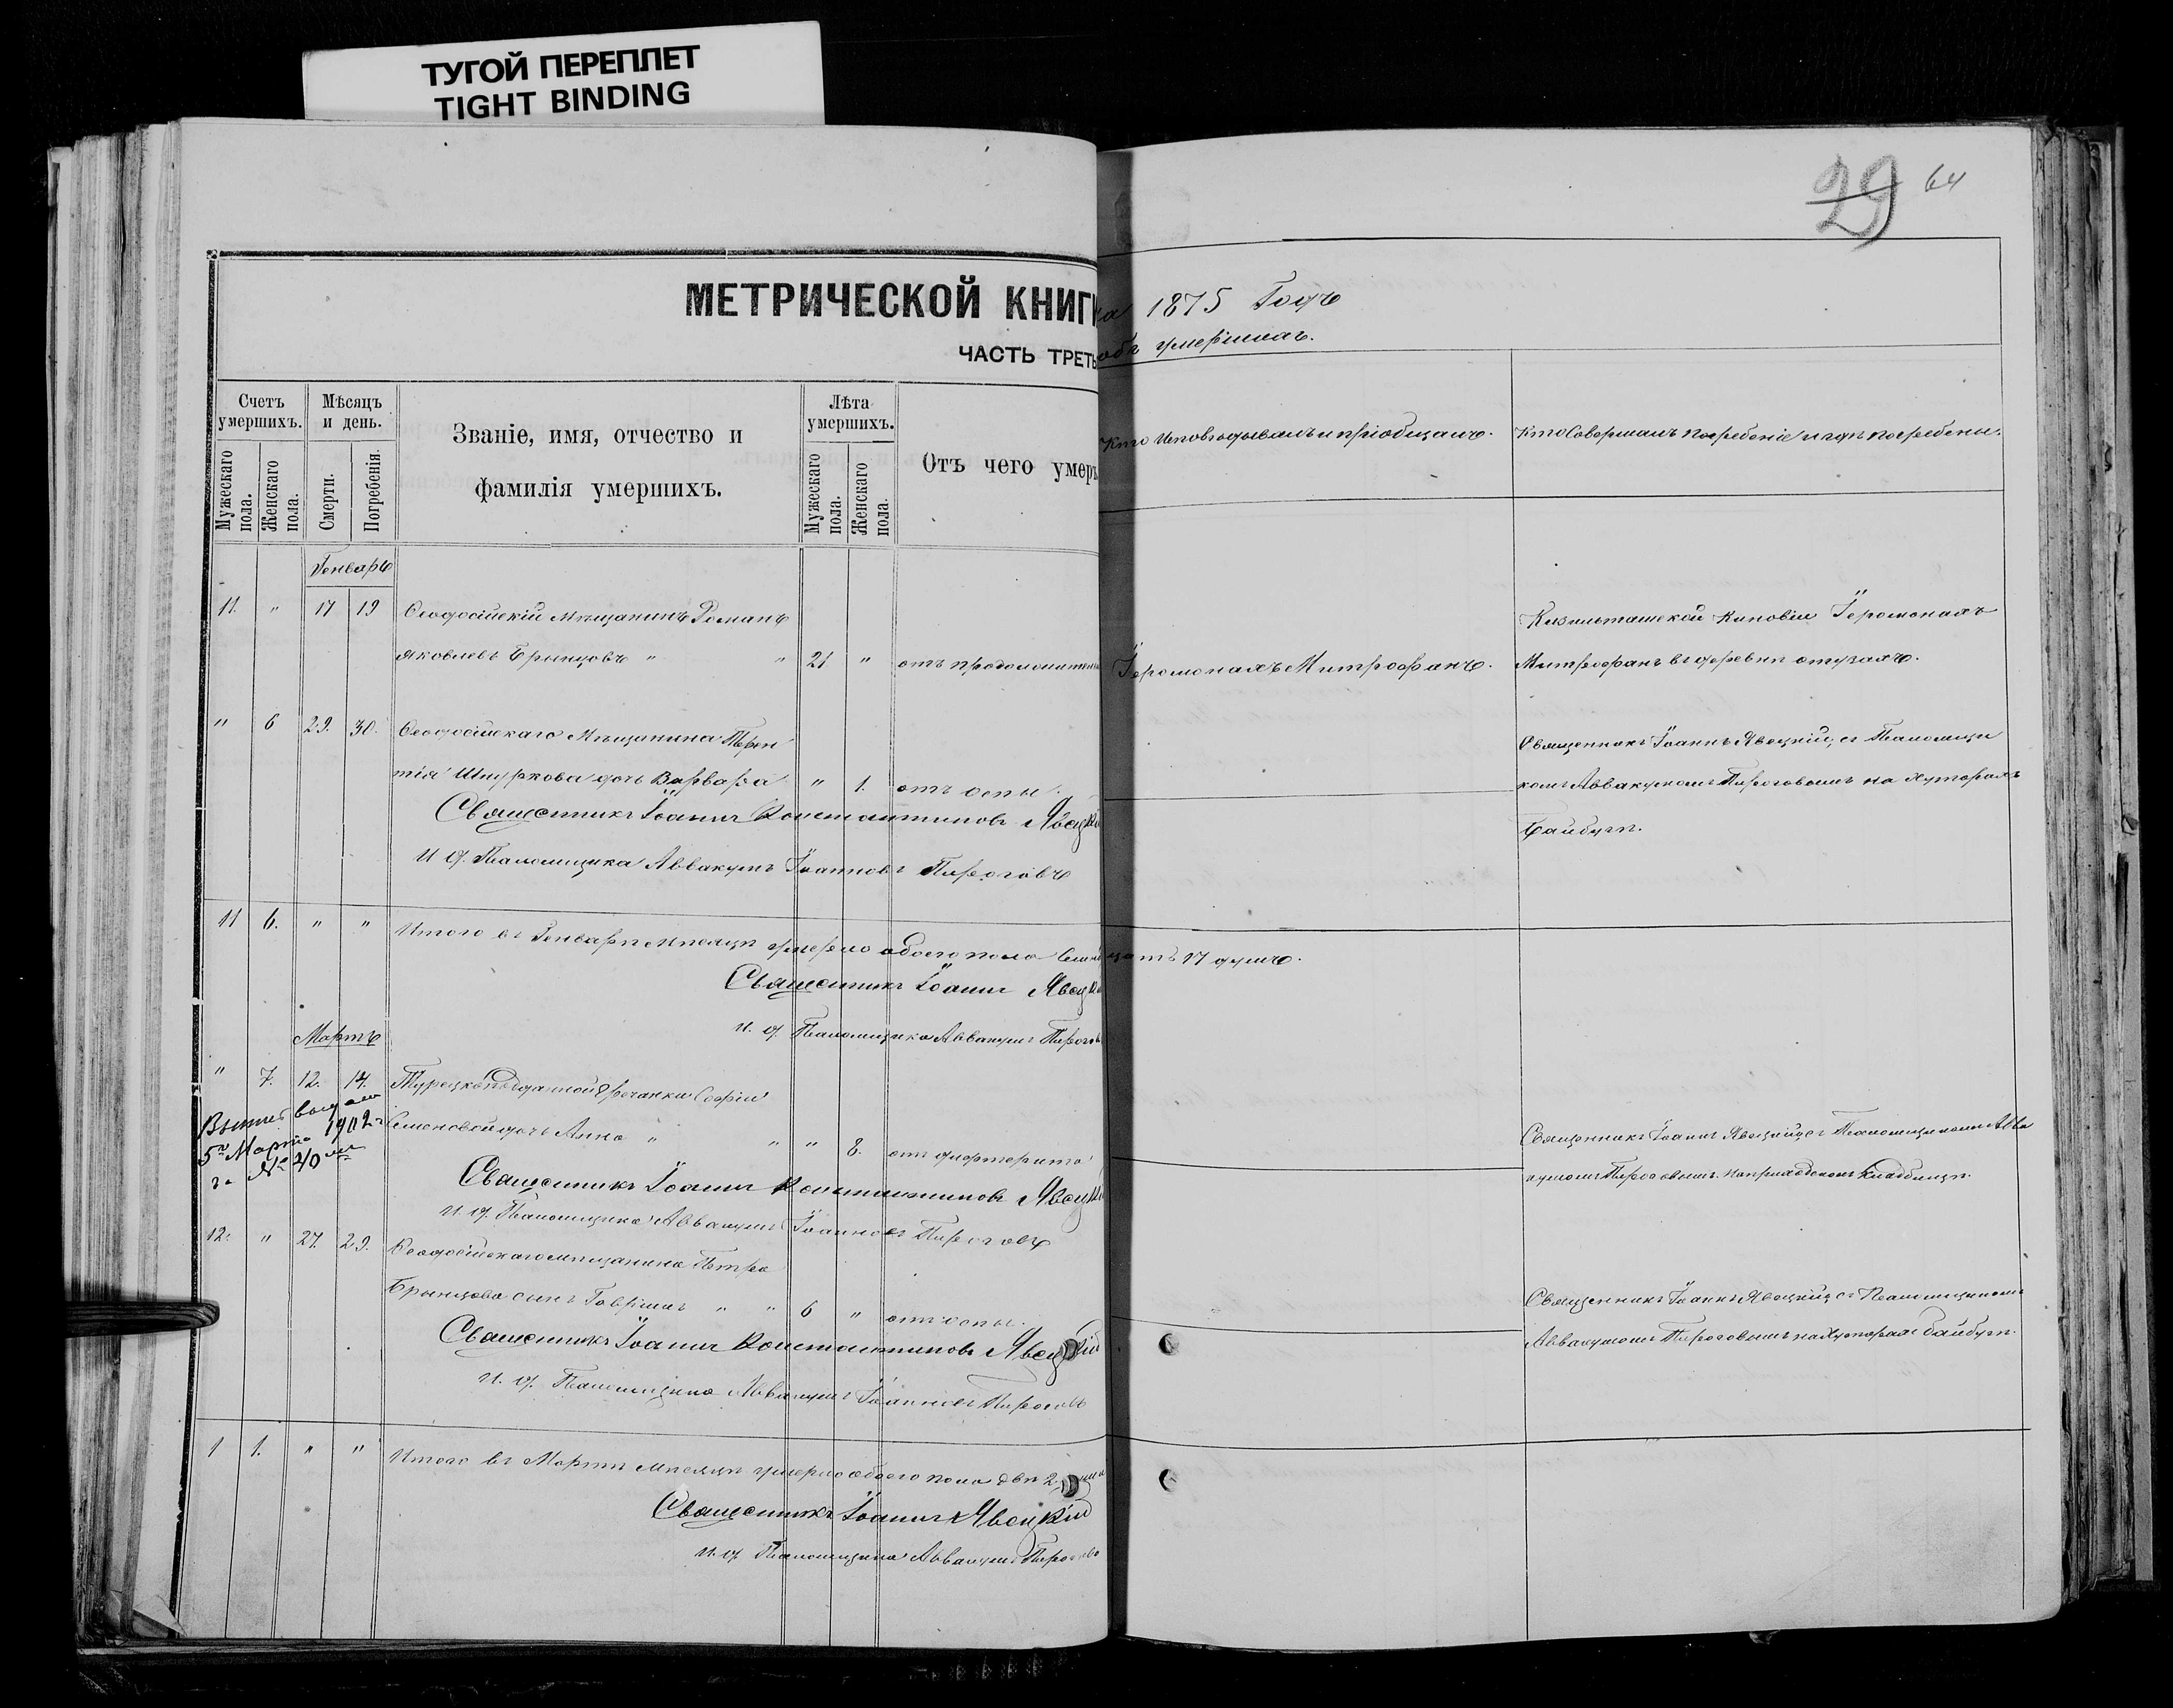 ТУГОЙ ПЕРЕПЛЕТ
TIGHT BINDING
29 64
МЕТРИЧЕСКОЙ КНИГИ на 1875 Годъ
ЧАСТЬ ТРЕТЬ объ умершихъ.
Счетъ умершихъ.
Мѣсяцъ и день.
Званіе, имя, отчество и фамилія умершихъ.
Лѣта умершихъ.
Отъ чего умеръ
Кто Исповѣдывалъ и пріобщалъ.
Кто Совершалъ погребеніе и гдѣ погребены.
Мужескаго пола.
Женскаго пола.
Смерти.
Погребенія.
Мужескаго пола.
Женскаго пола.
Генварь
11. " 17 19 Ѳеодосійскій Мѣщанинъ Романъ
Яковлевъ Брынцовъ " " 21 " отъ продолжительн
Іеромонахъ Митрофанъ.
Кизильташской Киновіи Іеромонахъ
Митрофанъ въ деревнѣ Отузахъ.
" 6 29. 30. Ѳеодосійскаго Мѣщанина Терен
тія Шнуркова дочь Варвара " 1. отъ оспы.
Священникъ Іоаннъ Явецкій, съ Псаломщи
комъ Аввакумомъ Пироговымъ на хуторахъ
Байбугѣ.
Священникъ Іоаннъ Константиновъ Явецкій
И. д. Псаломщика Аввакумъ Іоанновъ Пироговъ
11 6. " " Итого въ Генварѣ мѣсяцѣ умерло обоего пола Семнадцать 17 душъ.
Священникъ Іоаннъ Явецкі
И. д. Псаломщика Аввакумъ Пирогов
Мартъ
" 7. 12. 14. Турецкоподданной Гречанки Софіи
Семеновой дочь Анна " " " 8. отъ дифтерита
5го Марта 1902
за № 40
Священникъ Іоаннъ Явецкій съ Псаломщикомъ Авва
кумомъ Пироговымъ на приходскомъ кладбищѣ.
Священникъ Іоаннъ Константиновъ Явецкі
И. д. Псаломщика Аввакумъ Іоанновъ Пироговъ
12. " 27. 29. Ѳеодосійскаго мѣщанина Петра
Брынцова сынъ Гавріилъ " " 6 " отъ оспы.
Священникъ Іоаннъ Явецкій съ Псаломщикомъ
Аввакумомъ Пироговымъ на хуторахъ Байбугѣ.
Священникъ Іоаннъ Константиновъ Явецкій
И. д. Псаломщика Аввакумъ Іоанновъ Пироговъ
1 1. " " Итого въ Мартѣ мѣсяцѣ умерло обоего пола двѣ 2 души
Священникъ Іоаннъ Явецкій
И. д. Псаломщика Аввакумъ Пироговъ